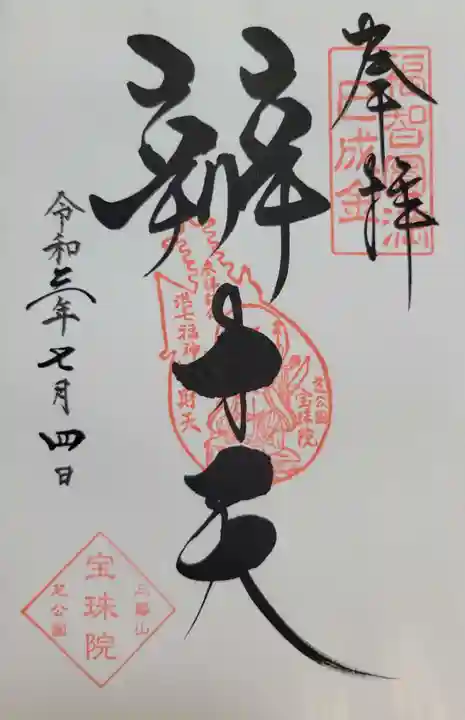 奉拝
福智円満
巳成金
辨才天
港七福神
芝公園
宝珠院
令和三年七月四日
三縁山
宝珠院
芝公園